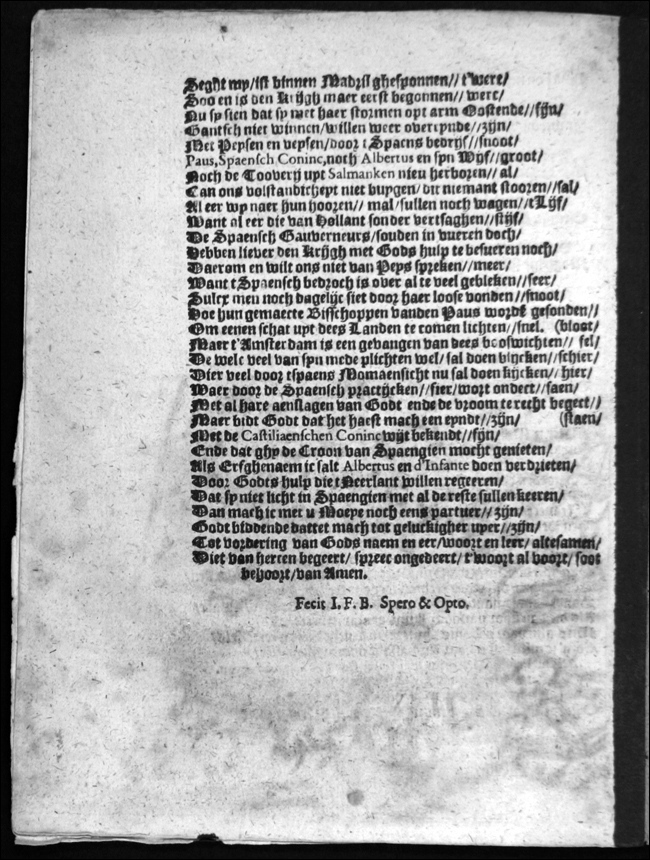 Seght my/ist binnen Madril ghesponnen// t'werc/
Soo en is den Krijgh maer eerst begonnen// werc/
Nu sy sien dat sy met haer stormen opt arm Oostende//fijn/
Gantsch niet winnen/willen weer overeynde//zijn/
Met Peysen en veysen/door t Spaens bedrijf//snoot/
Paus, Spaensch Coninc, noch Albertus en syn Wijf//groot/
Noch de Tooverij uyt Salmanken nieu herboren// al/
Can ons volstandicheyt niet buygen/ dit niemant stooren//sal/
Al eer wy naer hun hooren// mal/sullen noch wagen//t Lijf/
Want al eer die van Hollant sonder vertsaghen//stijf/
De Spaensch Gauverneurs/souden in vueren doch/
Hebben liever den Krijgh met Gods hulp te besueren noch/
Daerom en wilt ons niet van Peys spreken//meer/
Want t Spaensch bedroch is over al te veel gebleken//seer/
Sulcx men noch dagelijc siet door haer loose vonden//snoot/
Hoe hun gemaecte Bisschoppen vanden Paus wordē gesonden//
Om eenen schat uyt dees Landen te comen lichten//snel. (bloot/
Maer t'Amsterdam is een gevangen van dees booswichten// fel/
De welc veel van syn mede plichten wel/ sal doen blijcken//schier/
Dier veel door tspaens Momaensicht nu sal doen kijcken// hier/
Waer door de Spaensch practijcken//fier/wort ondect//saen/
Met al hare aenslagen van Godt ende de vroom te recht begect//
Maer bidt Godt dat het haest mach een eyndt//zijn/ (staen/
Met de Castiliaenschen Coninc wijt bekendt//fijn/
Ende dat ghy de Croon van Spaengien mocht genieten/
Als Erfghenaem ic salt Albertus en d'Infante doen verdrieten/
Door Godts hulp die t Neerlant willen regeeren/
Dat sy niet licht in Spaengien met al de reste sullen keeren/
Dan mach ic met u Moeye noch eens partuer// zijn/
Godt biddende dattet mach tot geluckigher uyer//zijn/
Tot vordering van Gods naem en eer/woort en leer/ altesamen/
Diet van herten begeert/ spreec ongedeert/ t'woort al voort/ soot
behoort/van Amen.
Fecit I. F. B. Spero & Opto.